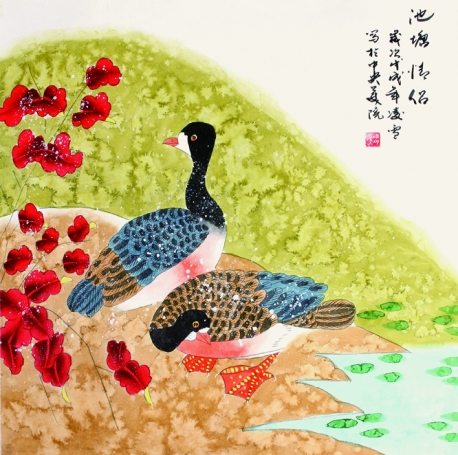 池塘情侣
岁次戊戌年凌雪
写於中央美院